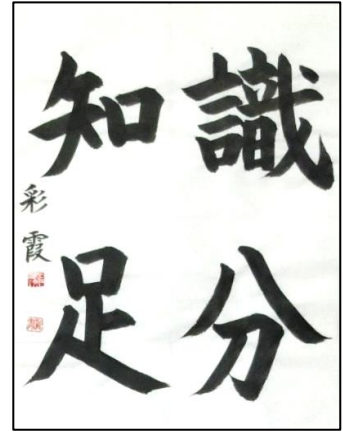 識分
知足
彩霞